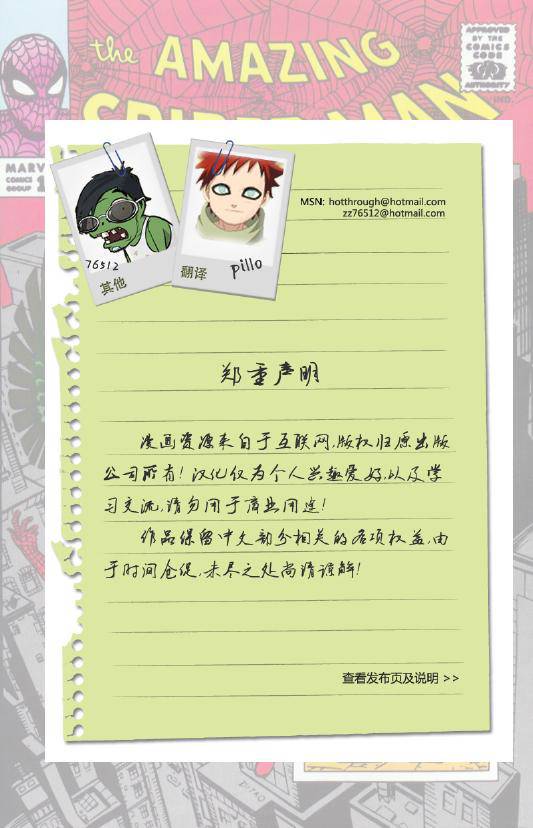 the AMAZING
SPIDER-MAN
APPROVED
BY THE
COMICS
CODE
AUTHORITY
IND.
MARV
COMICS
GROUP
MSN: hotthrough@hotmail.com
zz76512@hotmail.com
76512
其他
翻译 pillo
郑重声明
漫画资源来自于互联网,版权归原出版
公司所有!汉化仅为个人兴趣爱好,以及学
习交流,请勿用于商业用途!
作品保留中文部分相关的各项权益,由
于时间仓促,未尽之处尚请谅解!
查看发布页及说明 >>